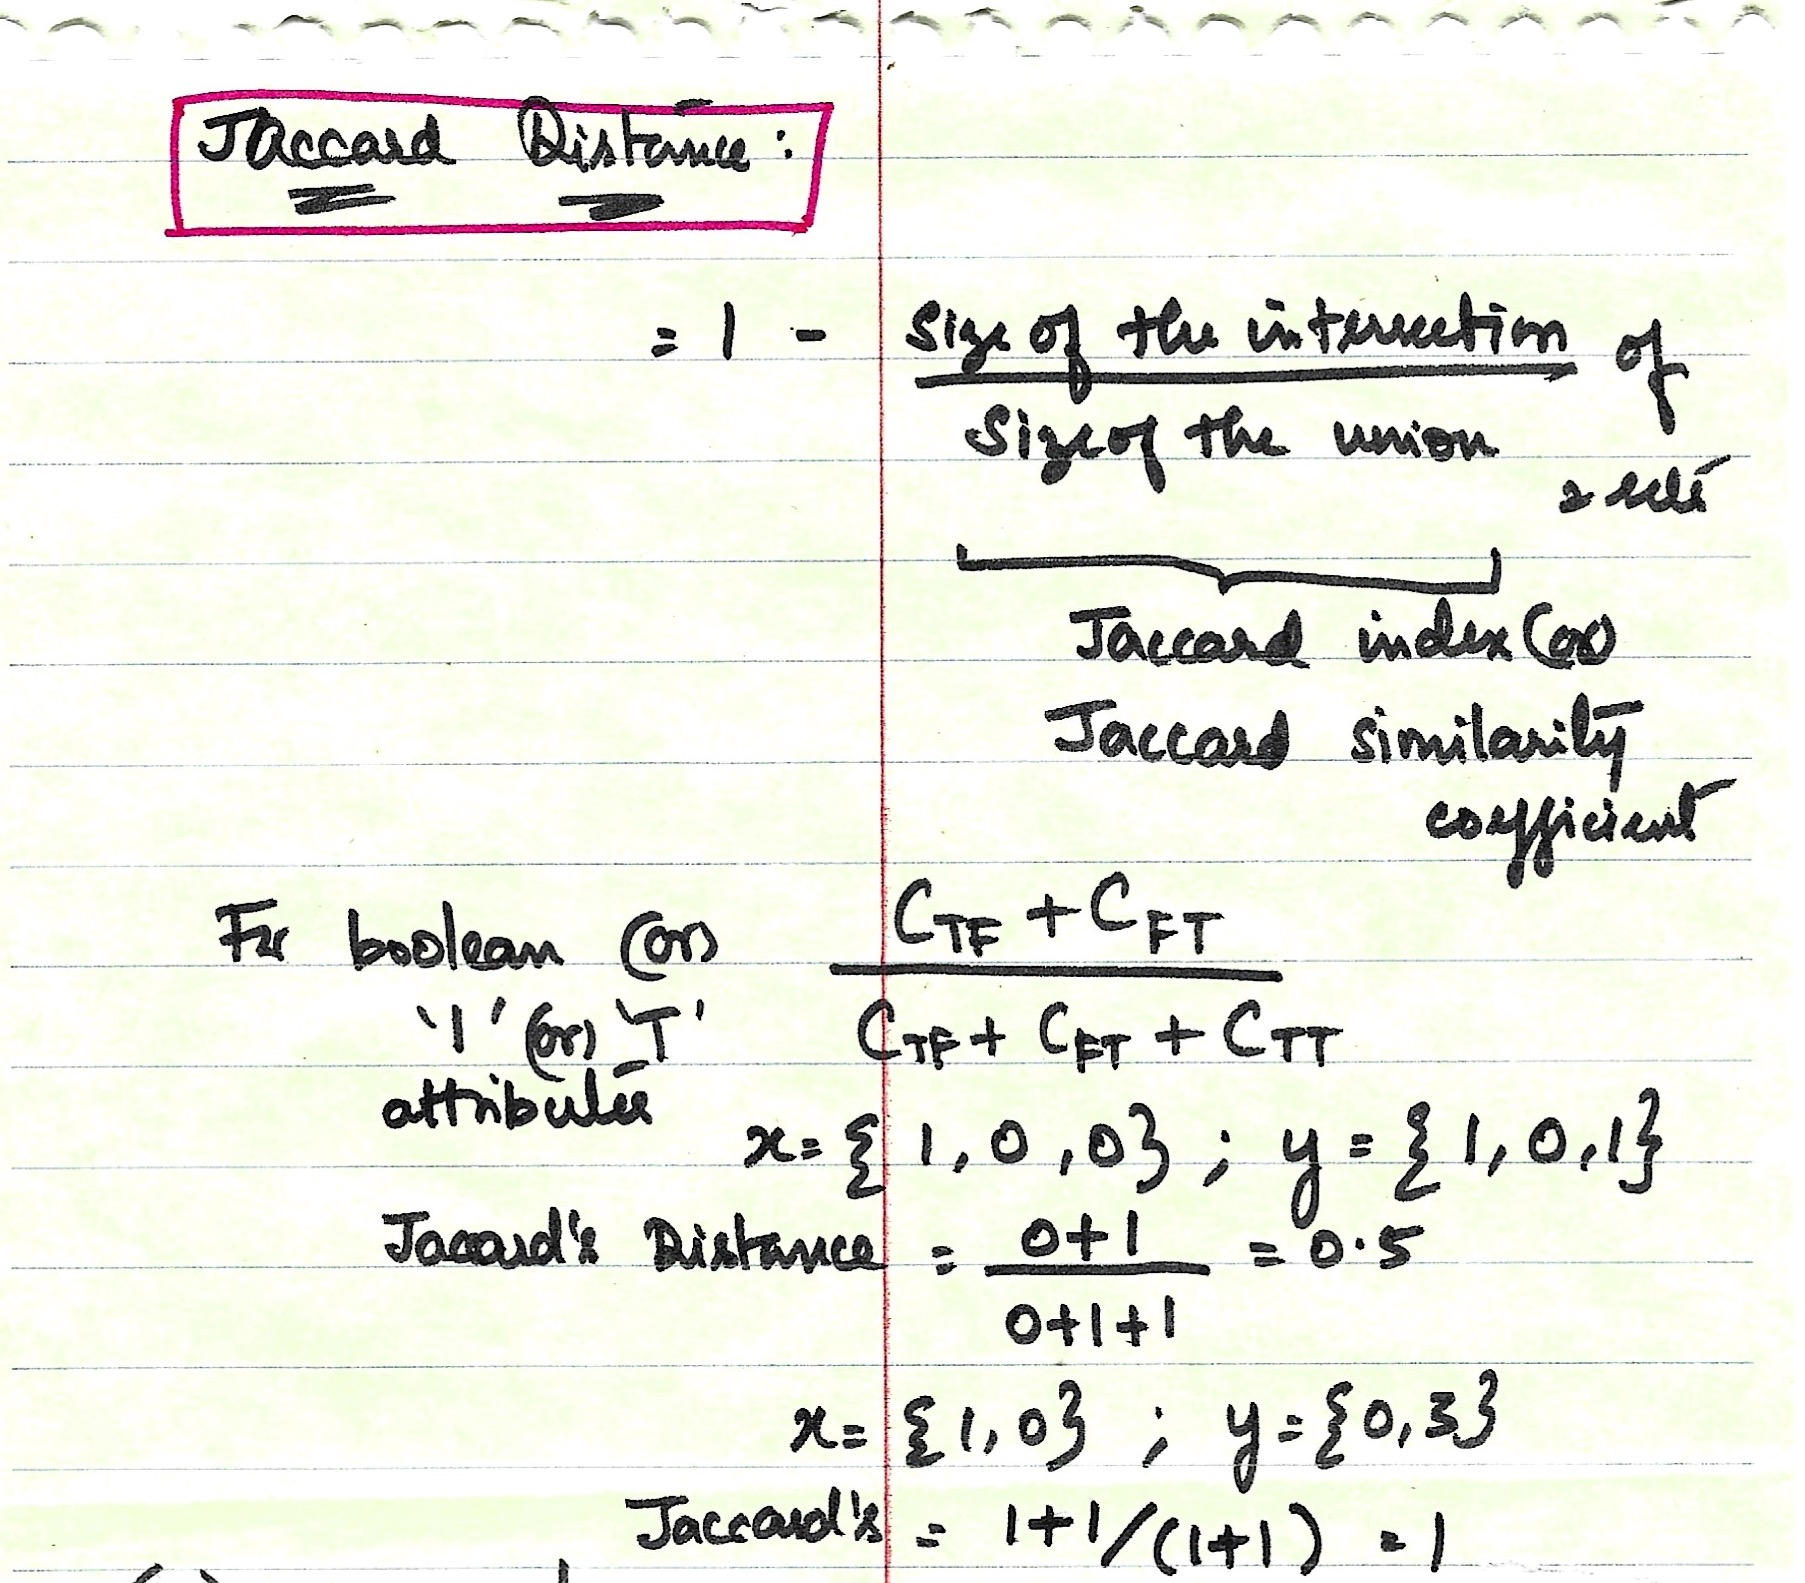 Jaccard Distance:
= 1 - Size of the intersection of
Size of the union
2 sets
Jaccard index (or)
Jaccard similarity
coefficient
For boolean (or) C_TF + C_FT
'1' (or) 'T' C_TF + C_FT + C_TT
attributes
x = { 1, 0, 0} ; y = { 1, 0, 1}
Jaccard's Distance = 0+1 = 0.5
0+1+1
x = { 1, 0} ; y = {0, 3}
Jaccard's = 1+1/(1+1) = 1